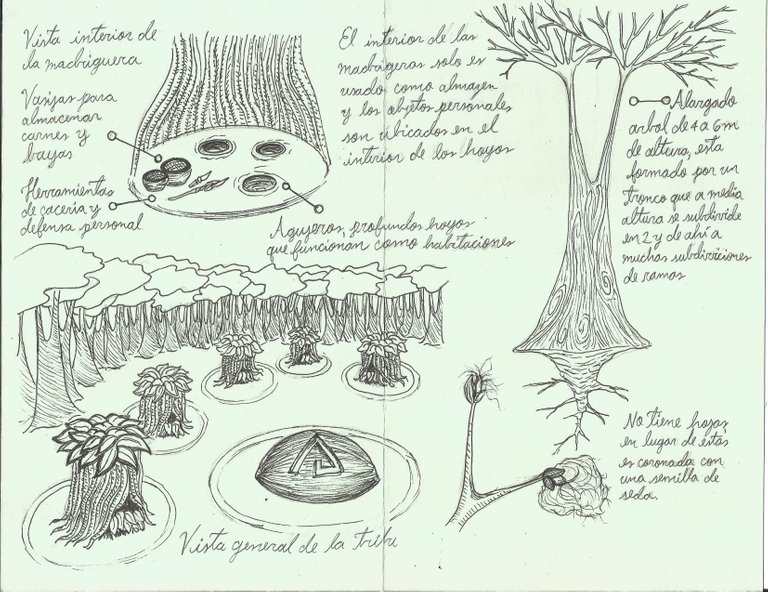 Vista interior de
la madriguera
Vasijas para
almacenar
carnes y
bayas
Herramientas
de caceria y
defensa personal
El interior de las
madrigeras solo es
usado como almasen
y los objetos personales
son ubicados en el
interior de los hoyos
Agujeros, profundos hoyos
que funcionan como habitaciones
Alargado
arbol de 4 a 6 m
de altura, esta
formado por un
tronco que a media
altura se subdivide
en 2 y de ahi a
muchas subdivisiones
de ramas
No tiene hojas
en lugar de estas
es coronada con
una semilla de
seda.
Vista general de la tribu